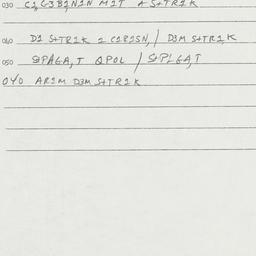 030 C1,G3B1N1N M1T A S+TR1K
040 D1 S+TR1K 2 C1B1SN,/ D3M S+TR1K
050 PAGA,T QPOL / S+P1GA,T
040 AR1M D3M S+TR1K